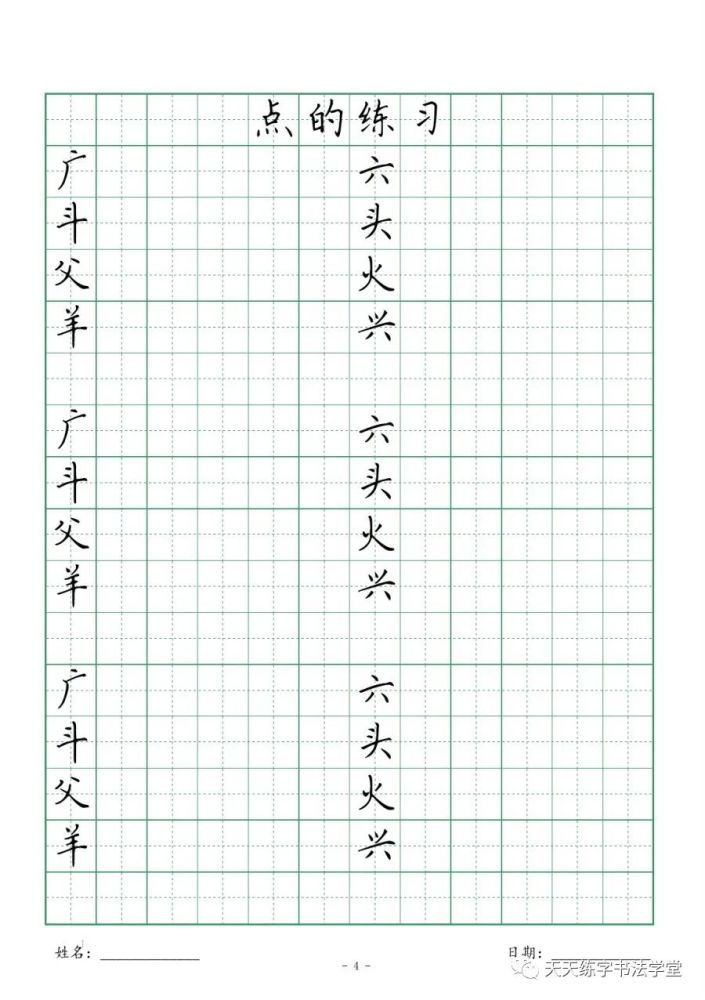 点的练习
广 六
斗 头
父 火
羊 兴
广 六
斗 头
父 火
羊 兴
广 六
斗 头
父 火
羊 兴
姓名：____________ - 4 - 日期：____________
天天练字书法学堂